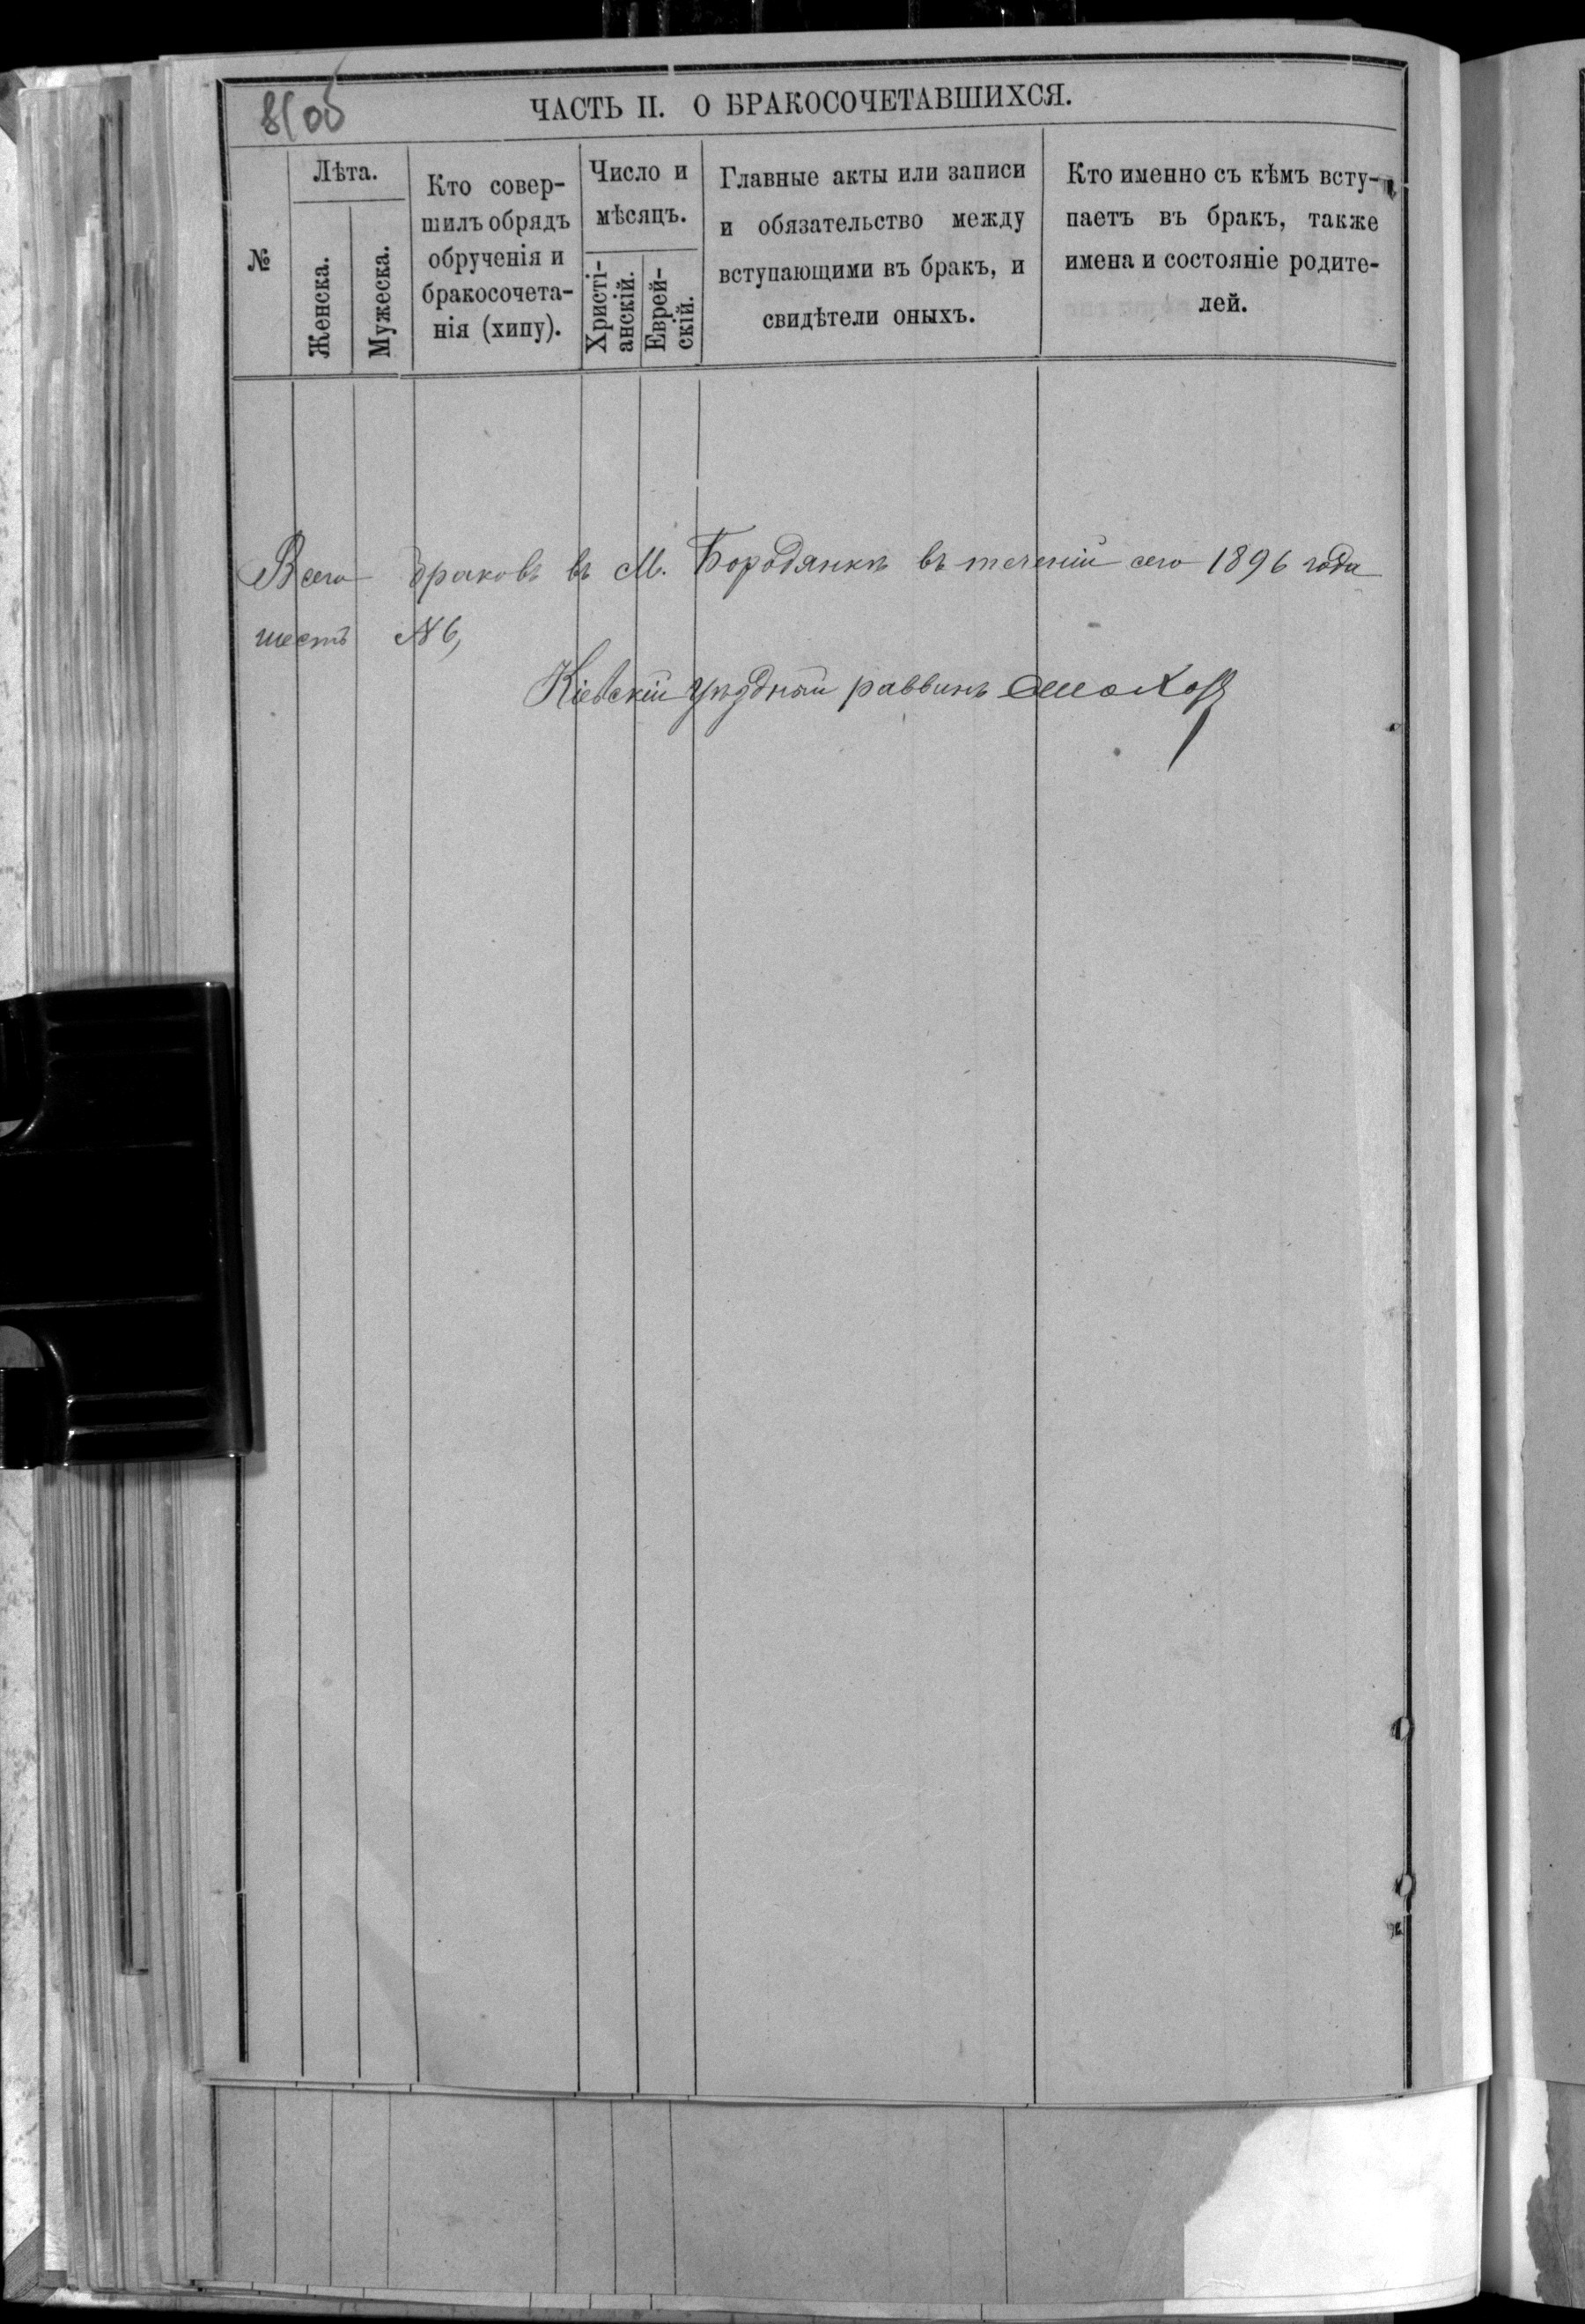 8 об
ЧАСТЬ II. О БРАКОСОЧЕТАВШИХСЯ.
№
Лѣта.
Женска.
Мужеска.
Кто совер-
шилъ обрядъ
обрученія и
бракосочета-
нія (хипу).
Число и
мѣсяцъ.
Христі-
анскій.
Еврей-
скій.
Главные акты или записи
и обязательство между
вступающими въ бракъ, и
свидѣтели оныхъ.
Кто именно съ кѣмъ всту-
паетъ въ бракъ, также
имена и состояніе родите-
лей.
Всего браковъ въ М. Бородянкѣ въ теченіи сего 1896 года
шесть №6,
Кіевскій Уѣздный раввинъ